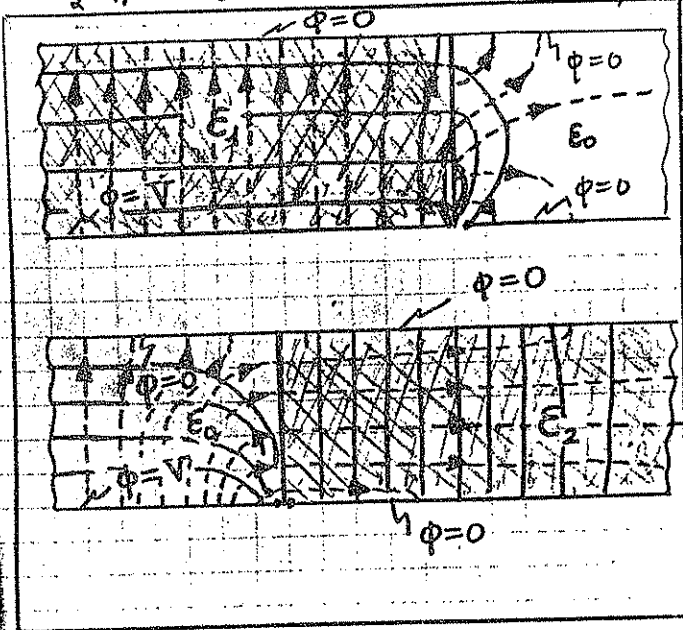 φ=0
φ=0
ε₁
ε₀
φ=V
φ=0
φ=0
φ=0
ε₀
ε₂
φ=V
φ=0